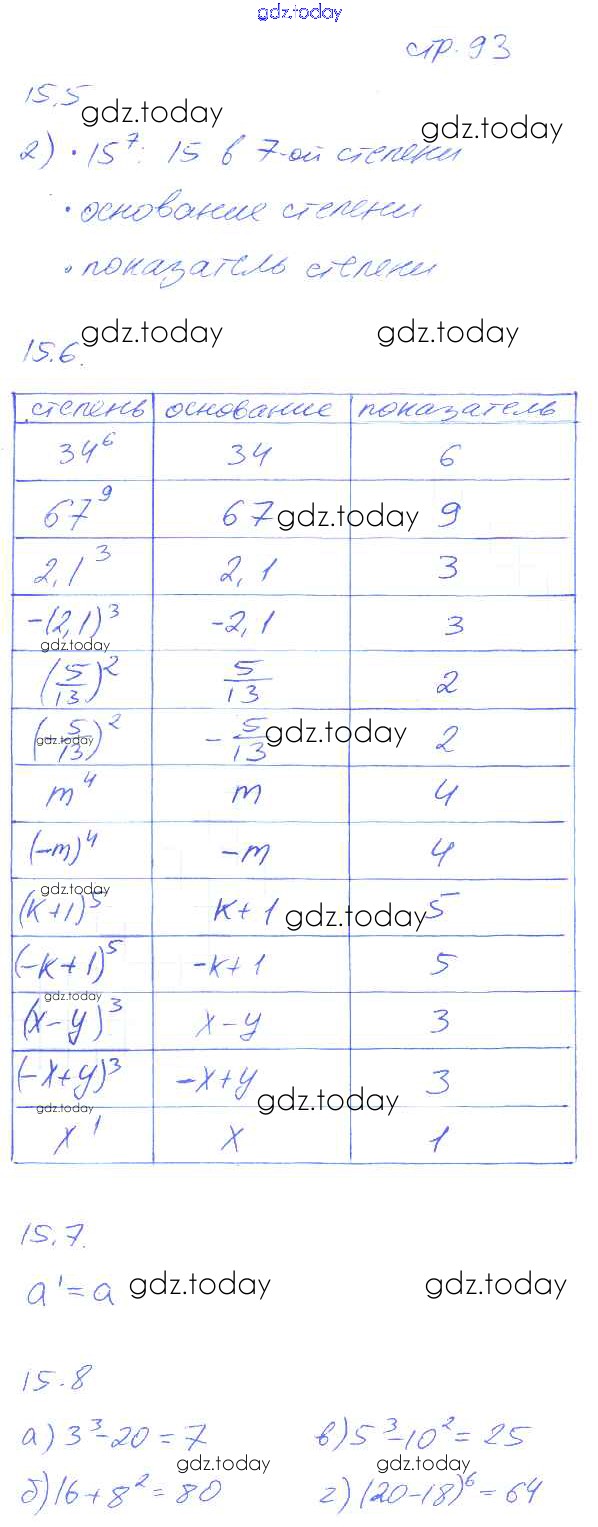 gdz.today
стр. 93
15.5
gdz.today gdz.today
2) • 15⁷: 15 в 7-ой степени
• основание степени
• показатель степени
gdz.today gdz.today
15.6.
степень основание показатель
34⁶ 34 6
67⁹ 67 gdz.today 9
2,1³ 2,1 3
-(2,1)³ -2,1 3
gdz.today
(5/13)² 5/13 2
(-5/13)² -5/13 2
gdz.today gdz.today
m⁴ m 4
(-m)⁴ -m 4
gdz.today
(k+1)⁵ k+1 gdz.today 5
(-k+1)⁵ -k+1 5
gdz.today
(x-y)³ x-y 3
(-x+y)³ -x+y 3
gdz.today gdz.today
x¹ x 1
15.7.
a¹=a gdz.today gdz.today
15.8
а) 3³-20=7 в) 5³-10²=25
gdz.today gdz.today
б) 16+8²=80 г) (20-18)⁶=64